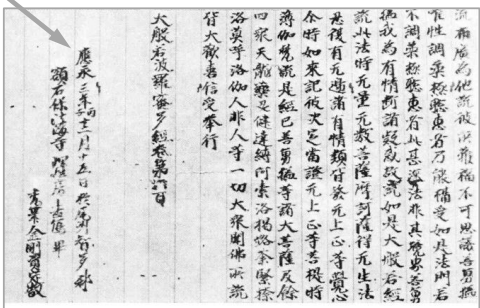 流布廣為他説彼所獲福不可思議善勇猛
有性調柔極聰叡者乃能攝受如是法門若
不調柔極聰叡者此甚深法非其境界善勇
猛我為有情斷諸疑故説如是大般若經
説此法時无量无數菩薩摩訶薩得无生法
忍復有无邊諸有情類皆發无上正等覺心
尒時如来記彼決定當證无上正等菩提時
薄伽梵説是經已善勇猛等諸大菩薩及餘
四衆天龍藥叉健達縛阿素洛揭路荼緊捺
洛莫呼洛伽人非人等一切大衆聞佛所説
皆大歡喜信受奉行
大般若波羅蜜多經卷第六百
應永三年丙子十二月十五日於
海寺
金剛